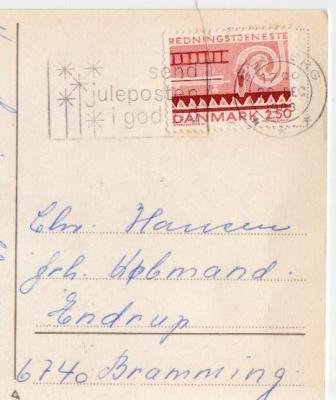 REDNINGSTJENESTE
DANMARK 2.50
send
juleposten
i god
RG
DEC.
Chr. Hansen
frh. Købmand.
Endrup
6740 Bramming.